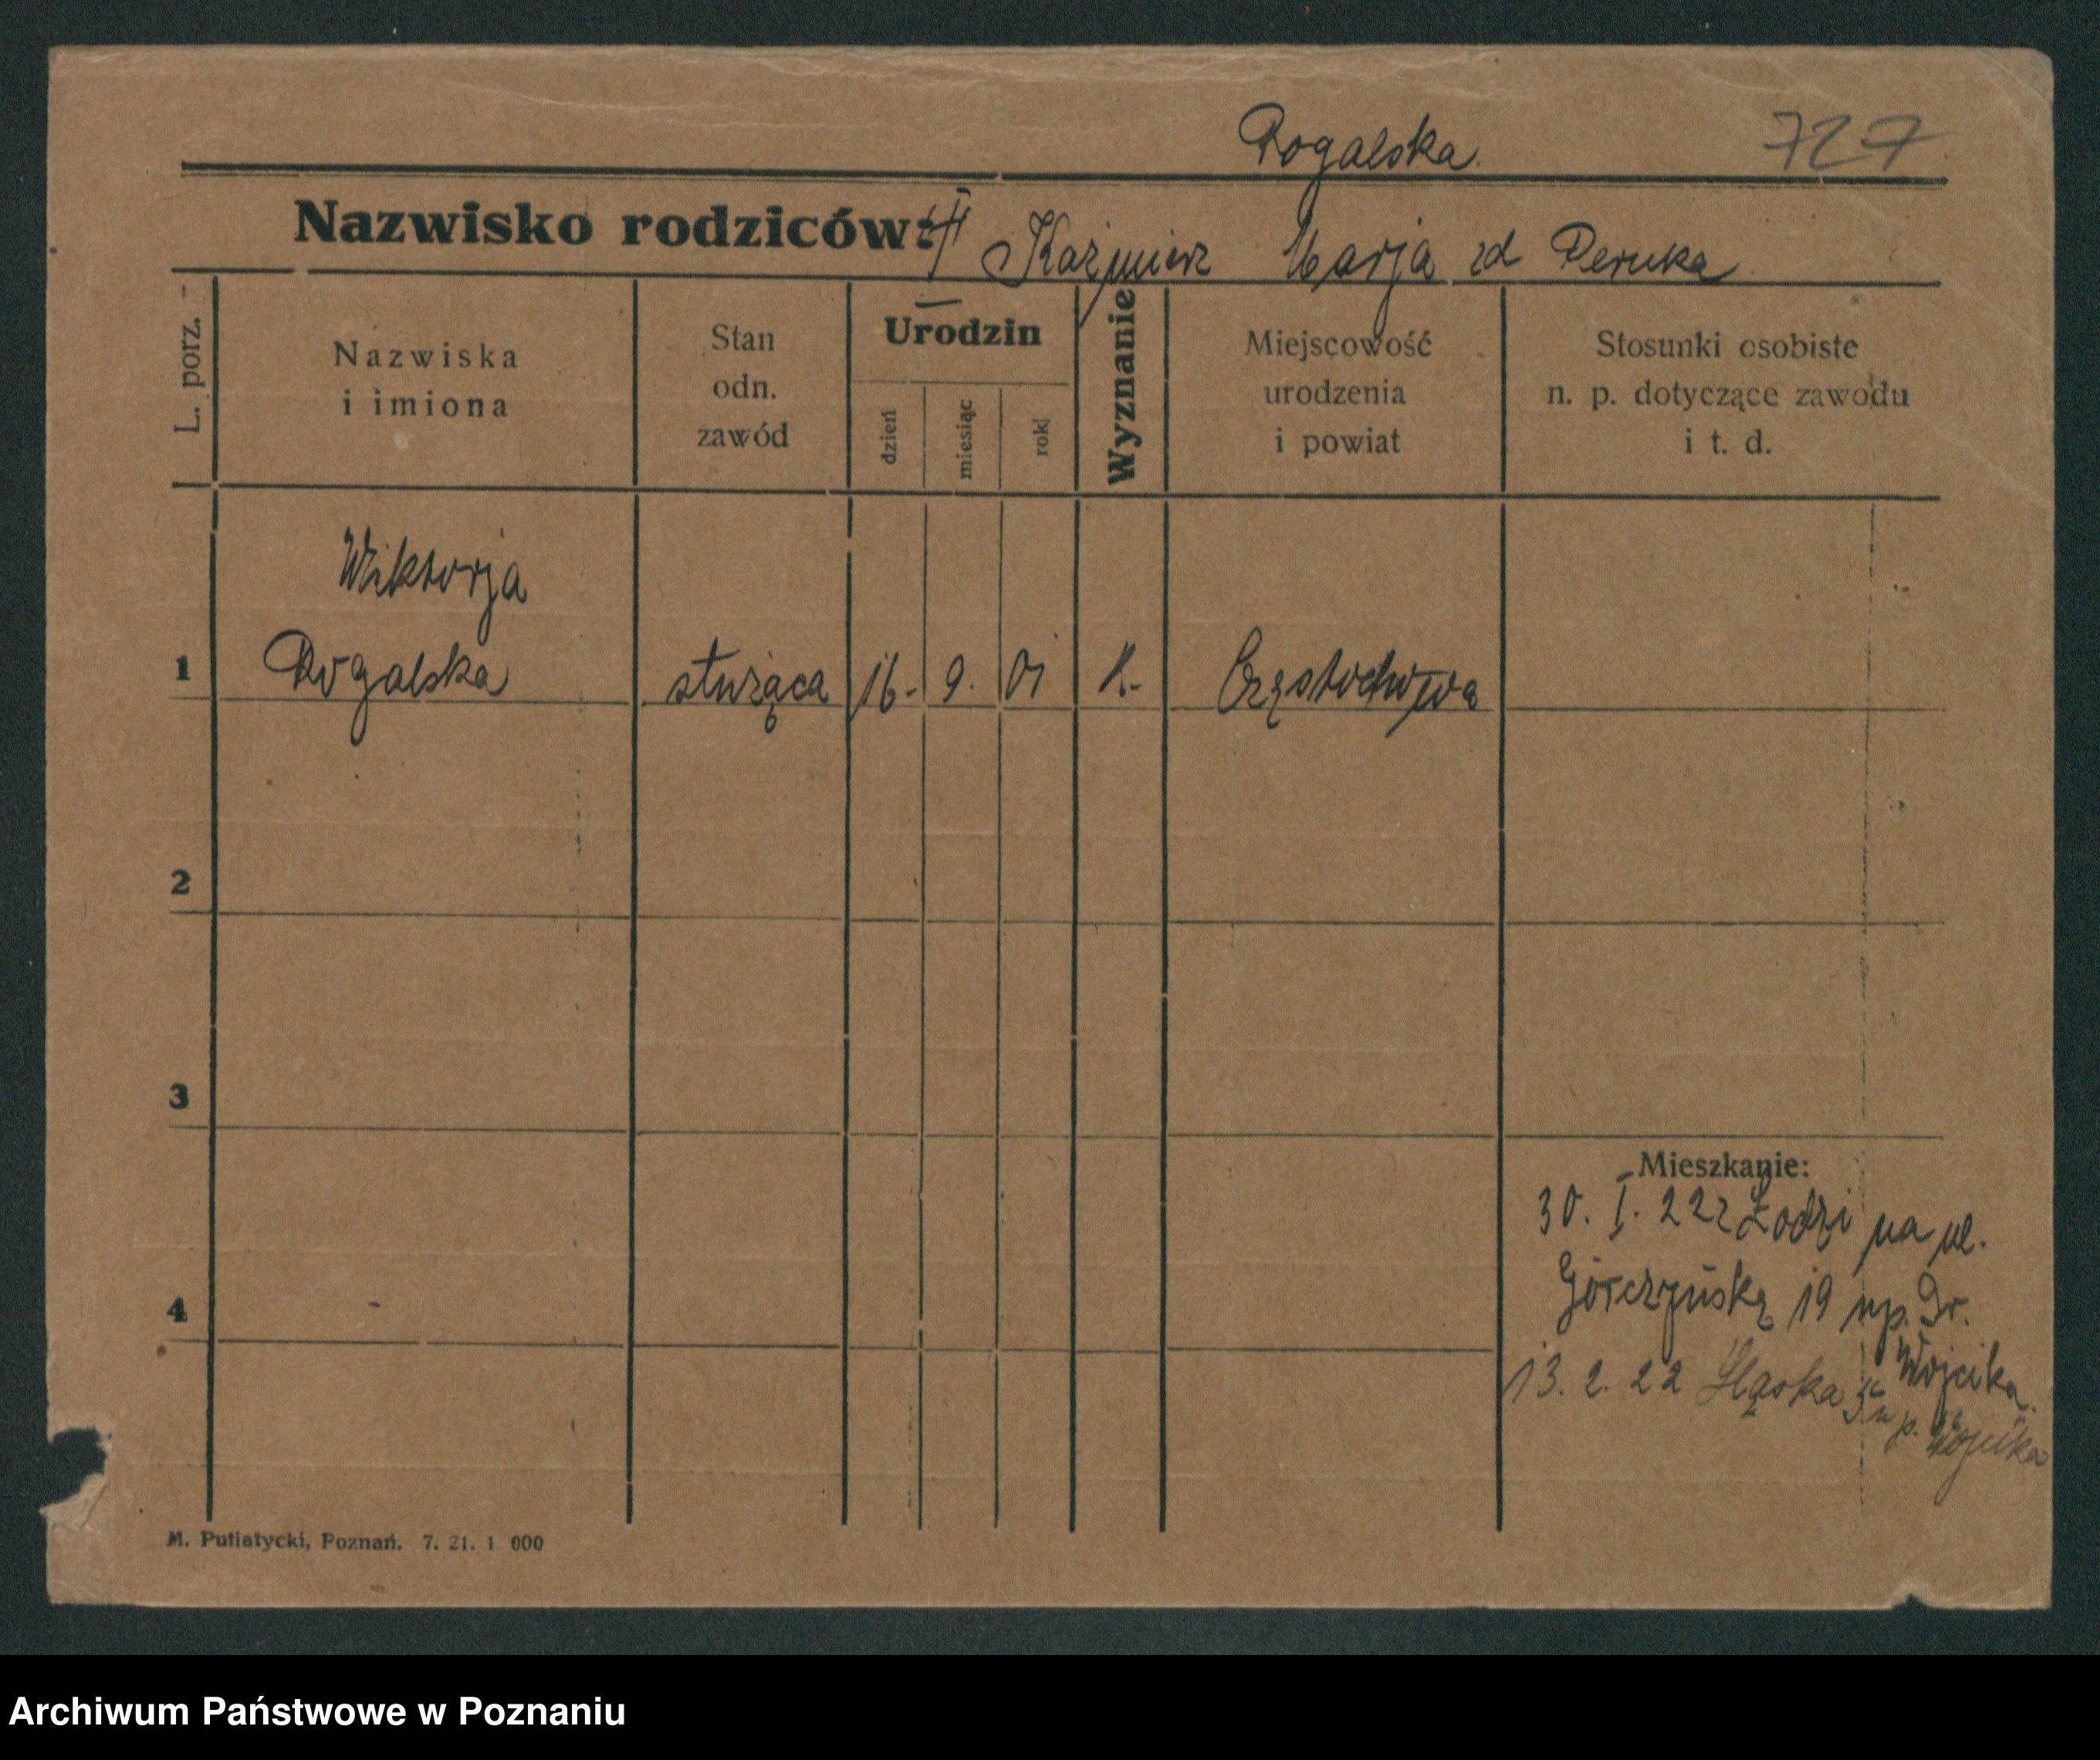 Rogalska
727
Nazwisko rodziców: Kaźmierz Marja zd Peruka
L. porz.
Nazwiska
i imiona
Stan
odn.
zawód
Urodzin
dzień
miesiąc
rok
Wyznanie
Miejscowość
urodzenia
i powiat
Stosunki osobiste
n. p. dotyczące zawodu
i t. d.
Wiktorja
1 Rogalska służąca 16. 9. 01 K. Częstochowa
2
3
Mieszkanie:
30. I. 22 z Łodzi na ul.
Górczyńską 19 u p. Dr.
4
Wojcika.
13. 2. 22 Śląska
u p. Wojcika
M. Putiatycki, Poznań. 7. 21. 1 000
Archiwum Państwowe w Poznaniu